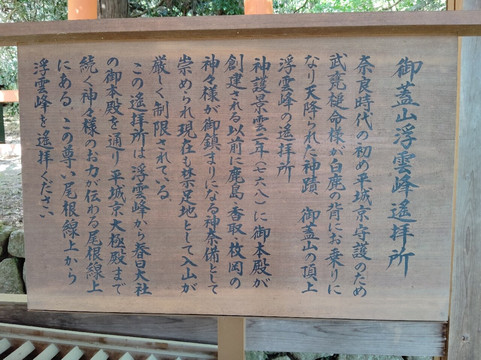 御蓋山浮雲峰遙拝所
奈良時代の初め平城京守護のため
武甕槌命様が白鹿の背にお乗りに
なり天降られた神蹟、御蓋山の頂上
浮雲峰の遙拝所
神護景雲二年（七六八）に御本殿が
創建される以前に鹿島・香取・枚岡の
神々様が御鎮まりになる神奈備として
崇められ現在も禁足地として入山が
厳しく制限されている。
この遙拝所は浮雲峰から春日大社
の御本殿を通り平城京大極殿まで
続く神々様のお力が伝わる尾根線上
にある。この尊い尾根線上から
浮雲峰を遙拝ください。